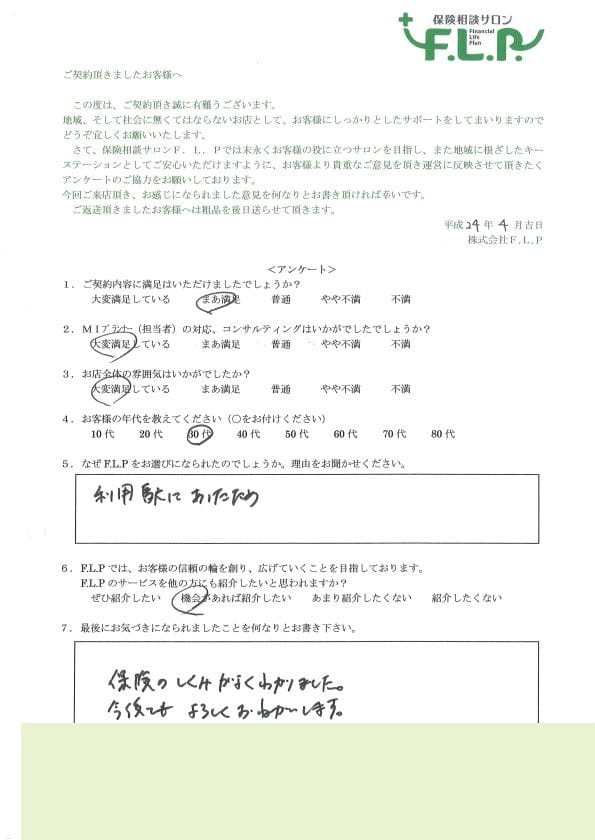 保険相談サロン
F.L.P.
Financial
Life
Plan
ご契約頂きましたお客様へ
この度は、ご契約頂き誠に有難うございます。
地域、そして社会に無くてはならないお店として、お客様にしっかりとしたサポートをしてまいりますので
どうぞ宜しくお願いいたします。
さて、保険相談サロンF．L．Pでは末永くお客様の役に立つサロンを目指し、また地域に根ざしたキー
ステーションとしてご安心いただけますように、お客様より貴重なご意見を頂き運営に反映させて頂きたく
アンケートのご協力をお願いしております。
今回ご来店頂き、お感じになられました意見を何なりとお書き頂ければ幸いです。
ご返送頂きましたお客様へは粗品を後日送らせて頂きます。
平成 24 年 4 月吉日
株式会社F.L.P
＜アンケート＞
１．ご契約内容に満足はいただけましたでしょうか？
大変満足している　まあ満足　普通　やや不満　不満
２．ＭＩプランナー（担当者）の対応、コンサルティングはいかがでしたでしょうか？
大変満足している　まあ満足　普通　やや不満　不満
３．お店全体の雰囲気はいかがでしたか？
大変満足している　まあ満足　普通　やや不満　不満
４．お客様の年代を教えてください（○をお付けください）
10代　20代　30代　40代　50代　60代　70代　80代
５．なぜF.L.Pをお選びになられたのでしょうか。理由をお聞かせください。
利用駅にあったため
６．F.L.Pでは、お客様の信頼の輪を創り、広げていくことを目指しております。
F.L.Pのサービスを他の方にも紹介したいと思われますか？
ぜひ紹介したい　機会があれば紹介したい　あまり紹介したくない　紹介したくない
７．最後にお気づきになられましたことを何なりとお書き下さい。
保険のしくみがよくわかりました。
今後とも よろしくおねがいします。